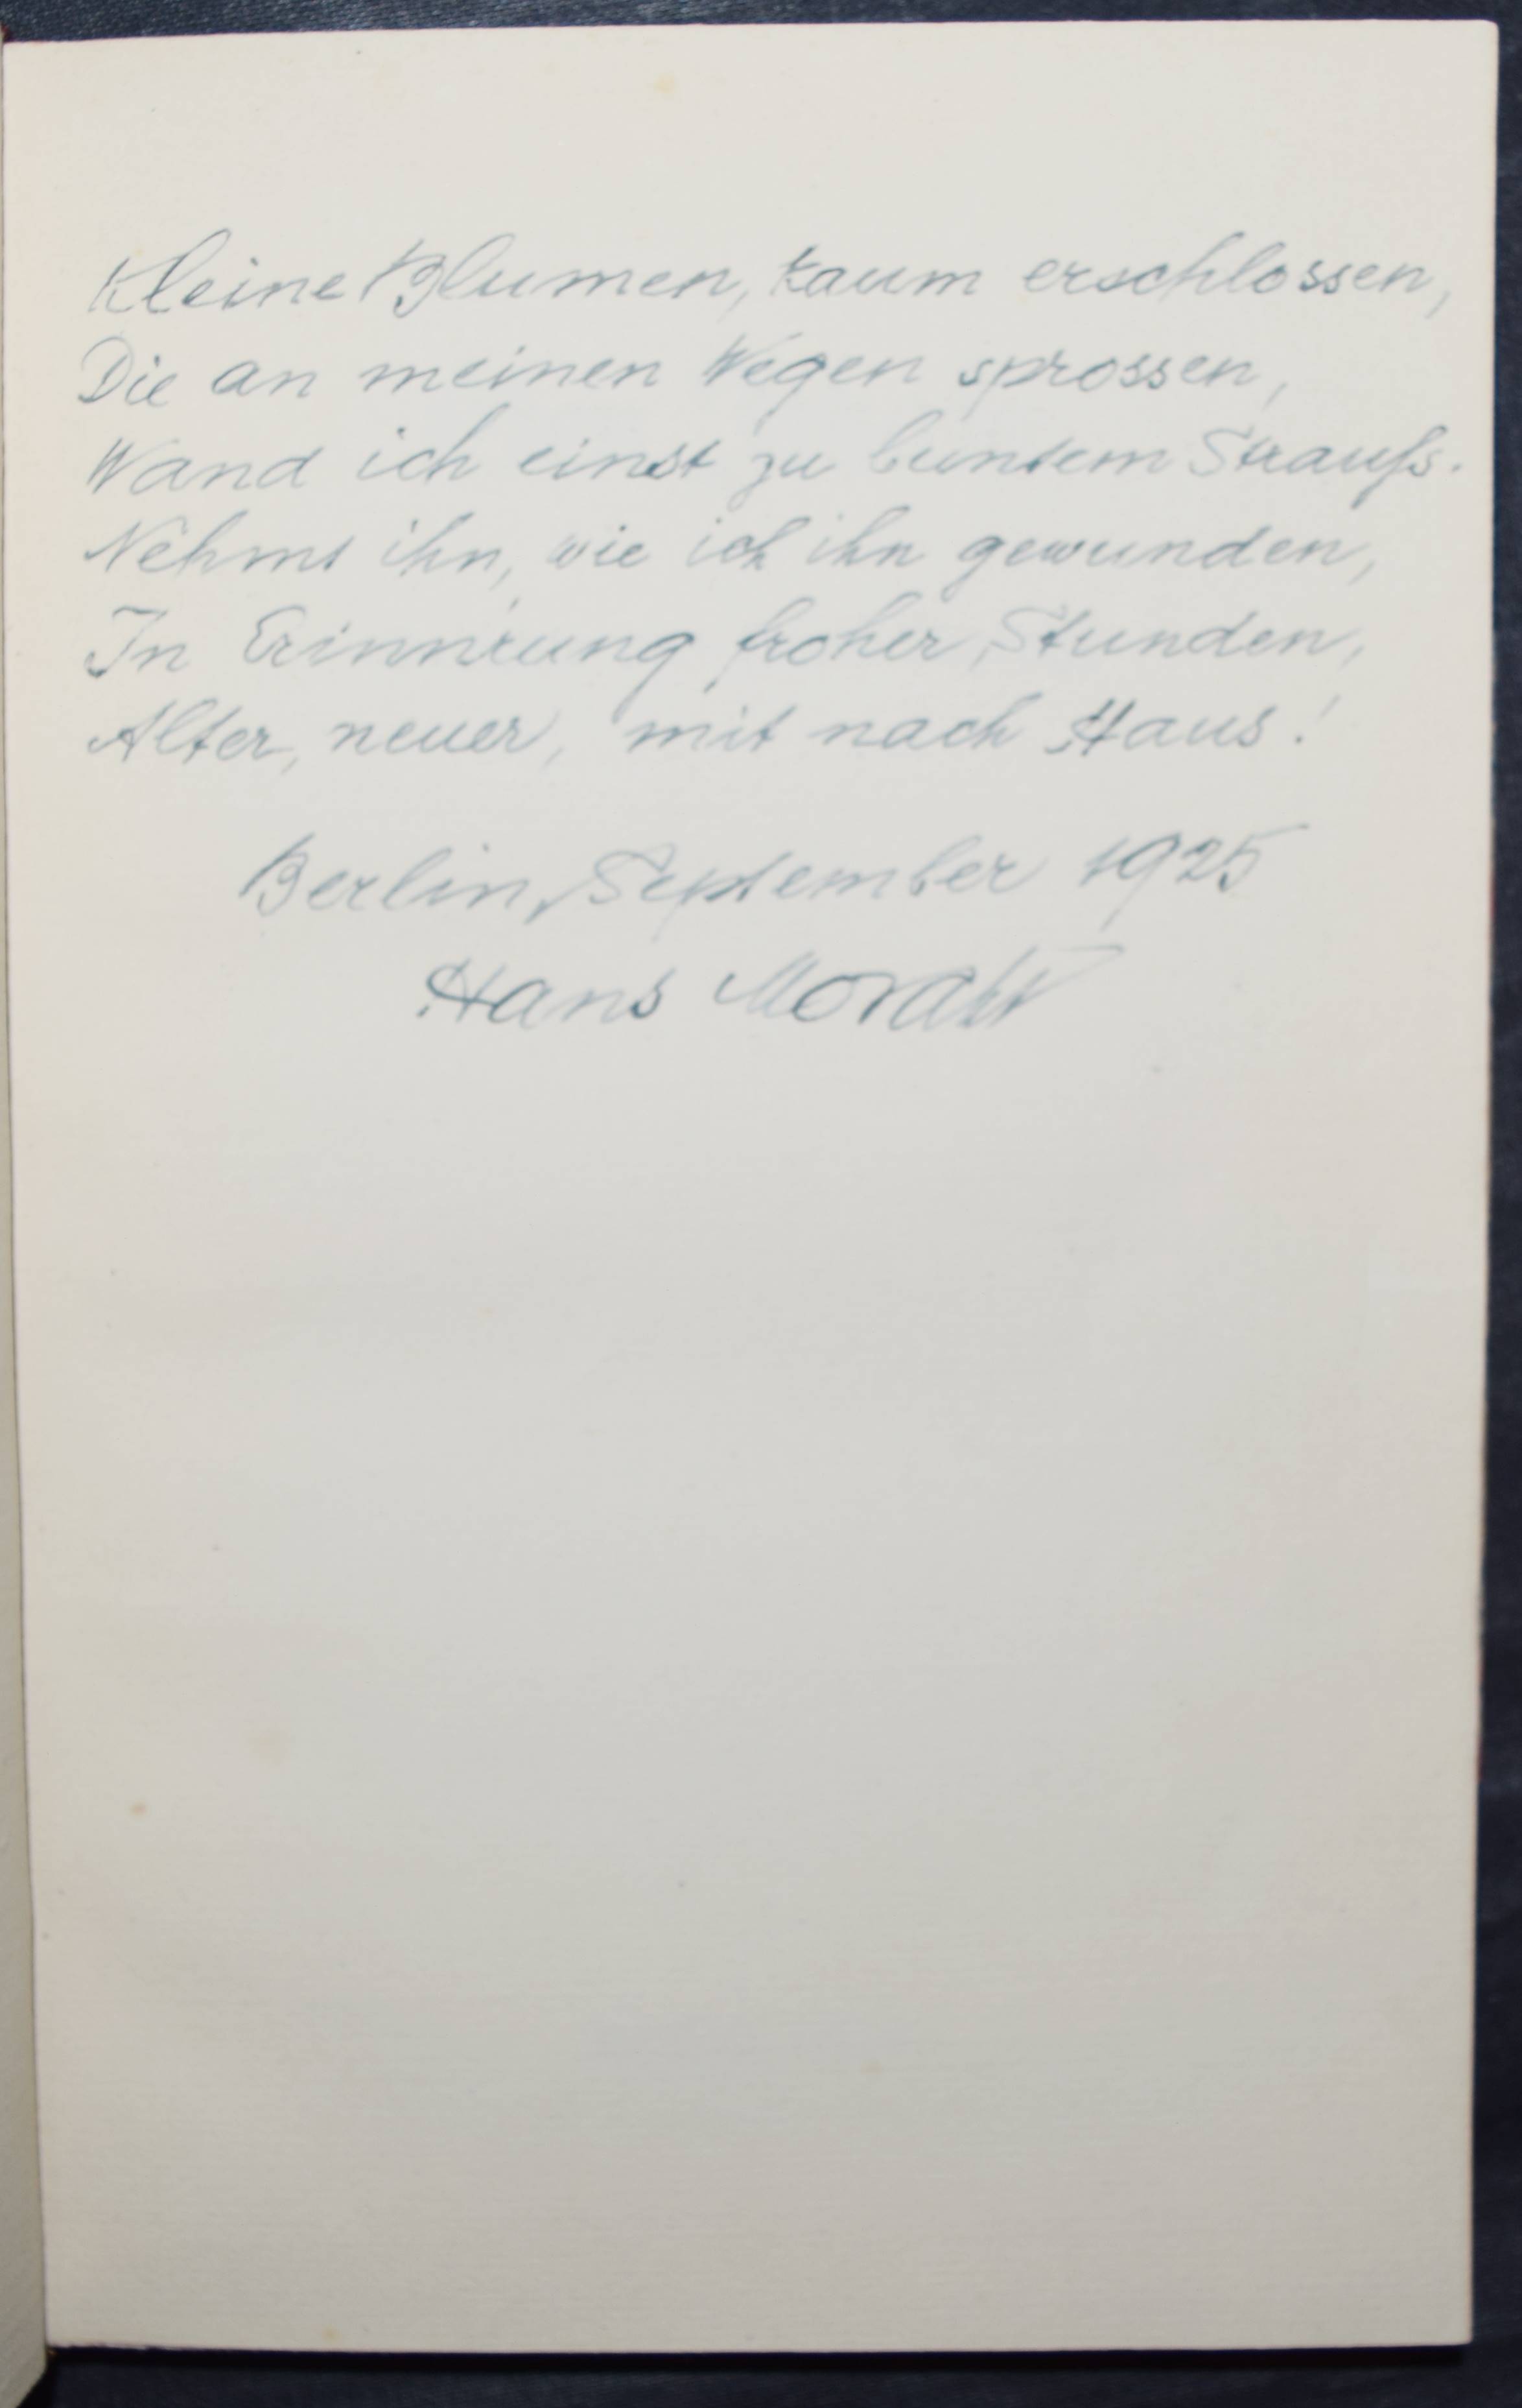 Kleine Blumen, kaum erschlossen,
Die an meinen Wegen sprossen,
Wand ich einst zu buntem Strauſs.
Nehmt ihn, wie ich ihn gewunden,
In Erinnrung froher Stunden,
Alter, neuer, mit nach Haus!
Berlin, September 1925
Hans